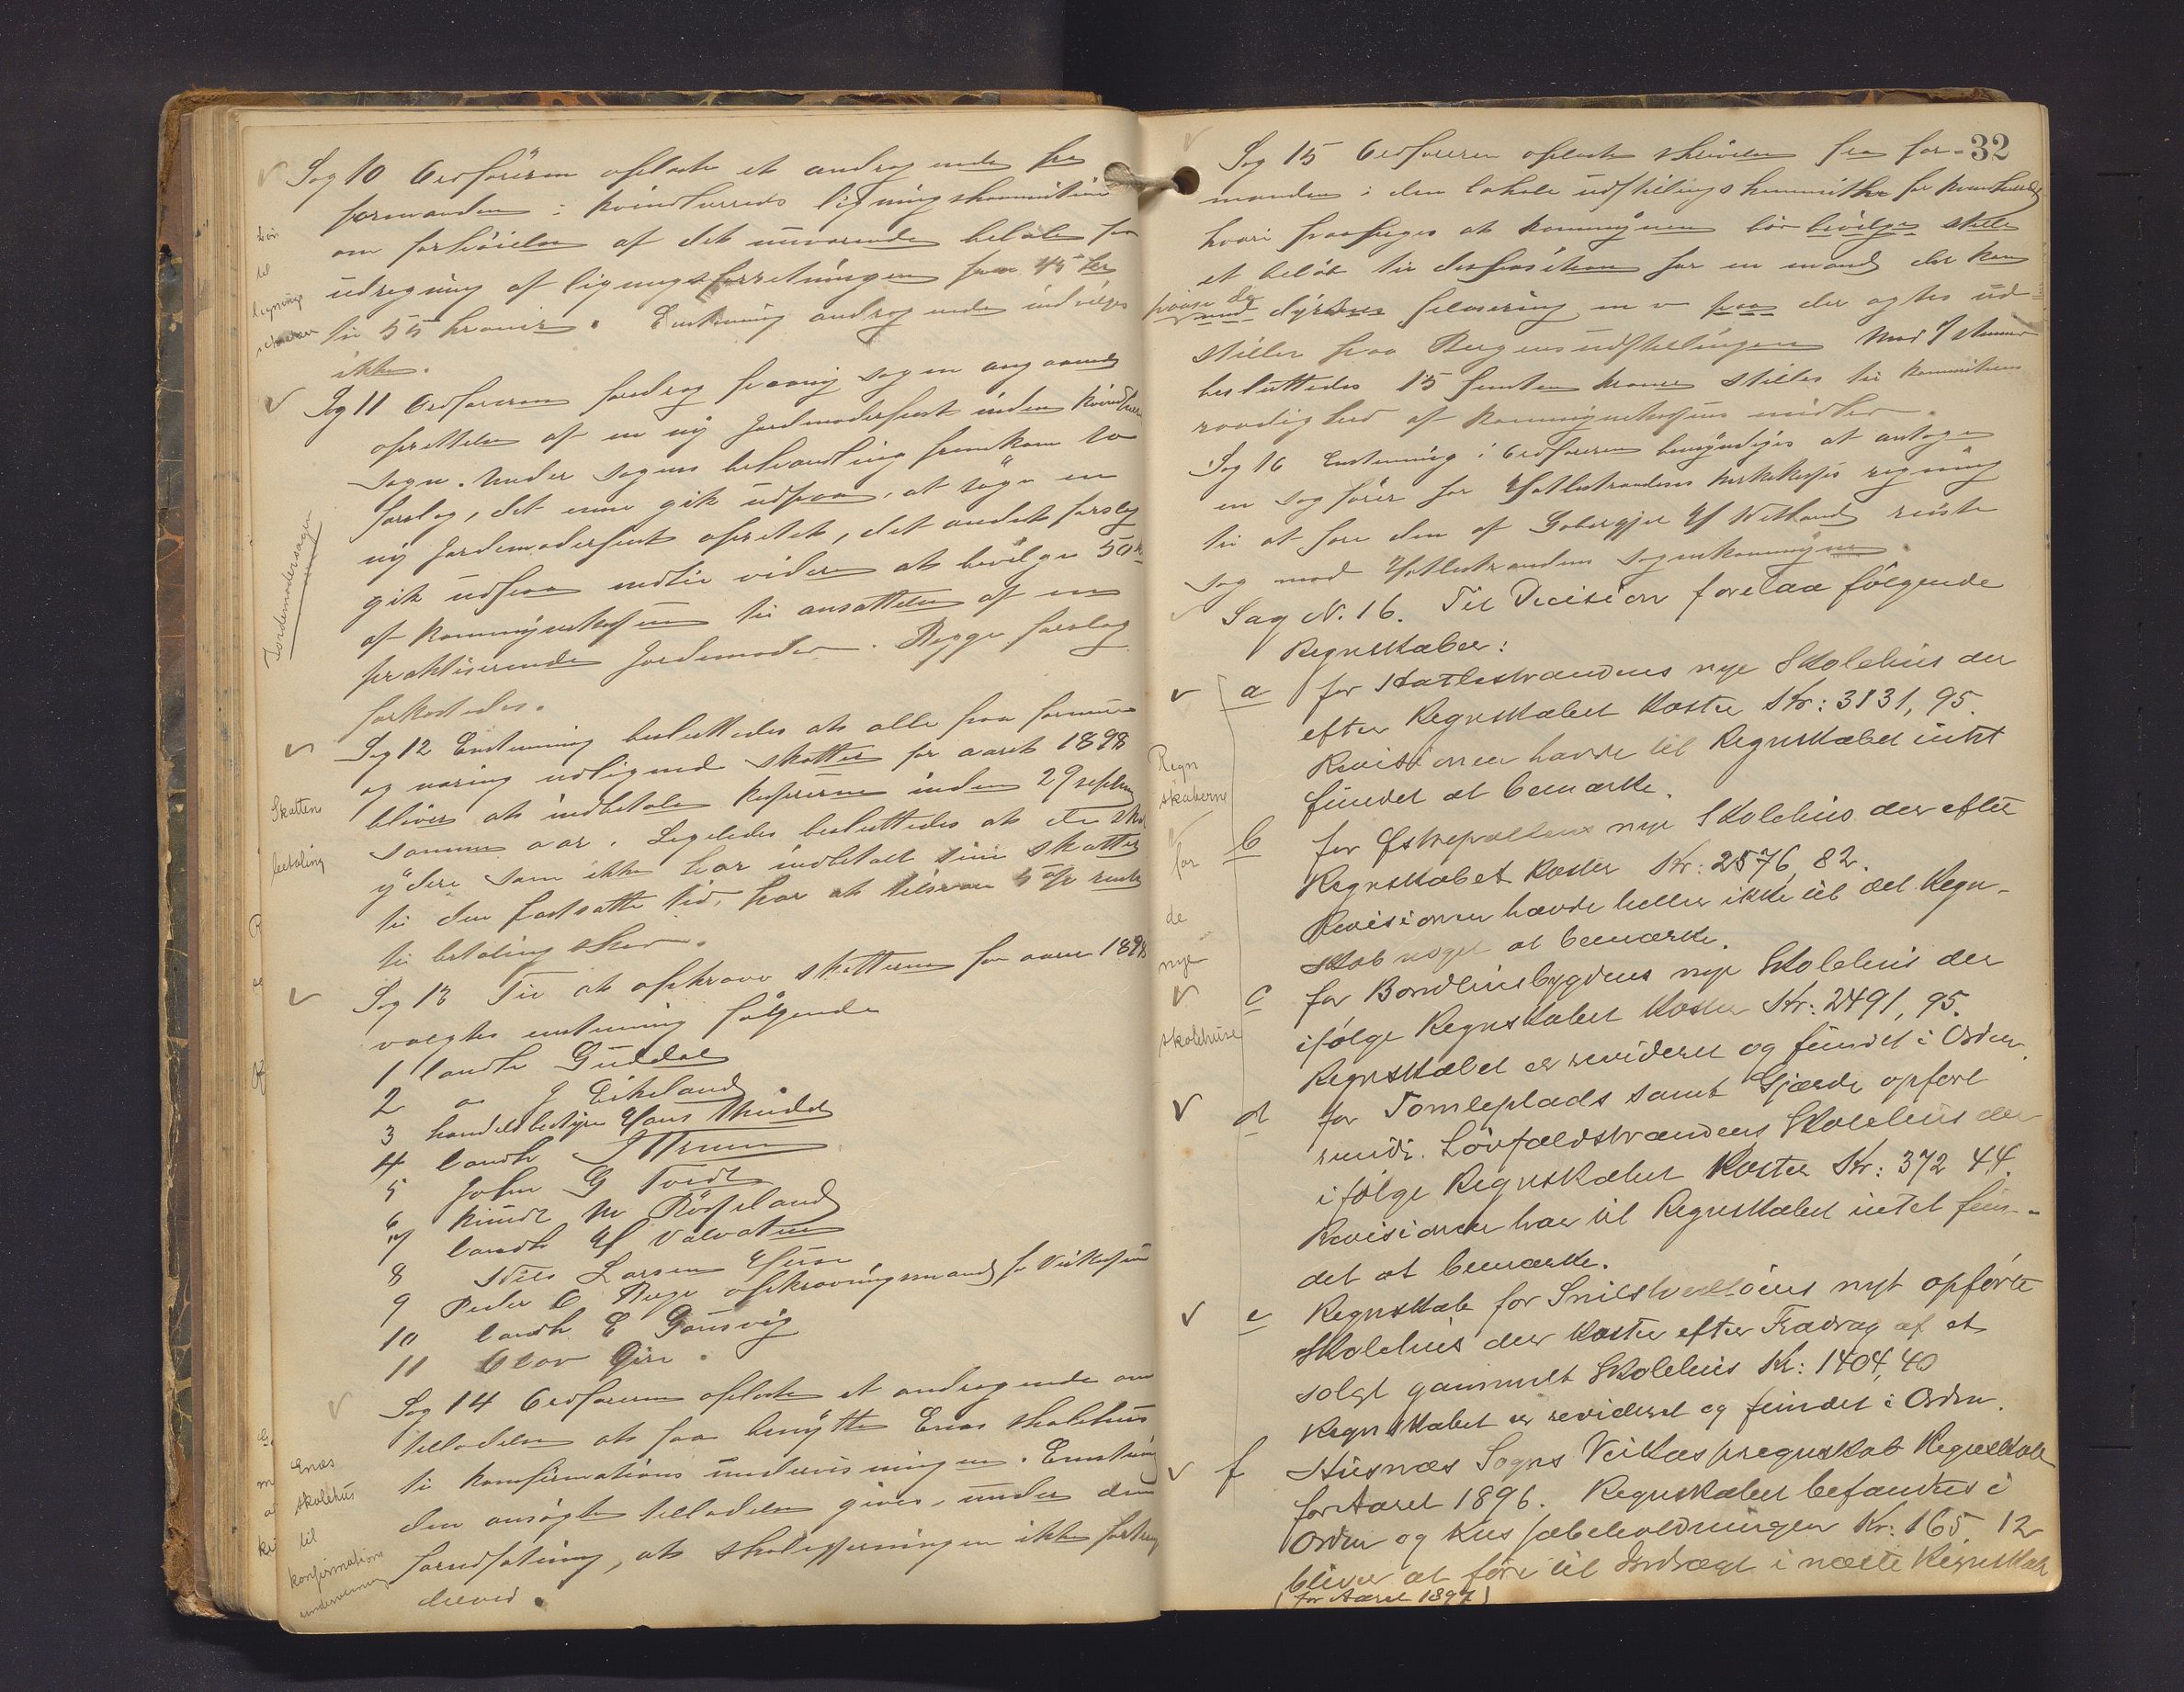 Sag 10 Ordføreren oplæste et andragende fra
formanden i Kvindherreds ligningskommission
om forhøielse af det nuværende beløb for
udregning af ligningsforretningen fra 45 kr
til 55 kroner. Enstemmig andragendet indvilges
ikke.
Løn
til
lignings
Sag 11 Ordføreren foredrog paany sagen angaaende
oprettelse af en ny Jordmoderpost inden Kvindherred
sogn. Under sagens behandling fremkom to
forslag, det enne gik udpaa, at søge en
ny Jordemoderpost oprettet, det andet forslag
gik udpaa indtil videre at bevilge 50 kr
af Kommunekassen til ansættelse af en
praktiserende Jordemoder. Begge forslag
forkastedes.
Jordemodersagen
Sag 12 Enstemmig besluttedes at alle paa formue
og næring udlignede skatter for aaret 1898
bliver at indbetale kassererne inden 29 septbr
samme aar. Ligeledes besluttedes at de skat
ydere som ikke har indbetalt sine skatter
til den fastsatte tid, har at tilsvare 5 % rente
til betaling sker.
Skattens
betaling
Sag 13 Til at opkræve skatterne for aaret 1898
valgtes enstemmig følgende
1 landh Guddal
2 " J Eikeland
3 handelsbestyrer Hans
4 landh
5 John G Tvedt
6 Knudt M Røsseland
7 landh H Valvatne
8 Niels Larsen Huse
9 Peder O Berge opkrævningsmand for Veikassen
10 landh E Gausvig
11 Olav Gjøn.
Sag 14 Ordføreren oplæste et andragende om
tilladelse at faa benytte Enæs skolehus
til konfirmations undervisningen. Enstemmig
den ansøgte tilladelse gives, under den
forudsætning, at skolegjerningen ikke fortrænges
derved.
Enæs
skolehus
til
konfirmations
undervisning
32
Sag 15 Ordføreren oplæste skrivelse fra for-
manden i den lokale udstillings kommitte for Kvindherred
hvori foreslaaes at kommunen bør bevilges stille
et beløb til disposition for en mand der kan
passe de
med dyrenes pleasering m v paa der agtes ud-
stilles paa Bergensudstillingen Med 9 stemmer
besluttedes 15 femten kroner stilles til kommiteens
raadighed af kommunekassens midler.
Sag 16 Enstemmig: Ordføreren bemyndiges at antage
en sagfører for Hatlestrandens herskabs regning
til at føre den af H Netland reiste
sag mod Hatlestrandens sognekommune
Sag N. 16. Til Decision forelaa følgende
Regnskaber:
a for Hatlestrandens nye Skolehus der
efter Regnskabet koster Kr: 3131,95.
Revisionen havde til Regnskabet intet
fundet at bemærke.
b for nye Skolehus der efter
Regnskabet koster Kr: 2576,82.
Revisionen havde heller ikke til det Regn-
skab noget at bemærke.
c for Bondhusbygdens nye Skolehus der
ifølge Regnskabet koster Kr: 2491,95.
Regnskabet er revideret og fundet i Orden.
d for Tomteplads samt Gjærde opført
rundt Løvfaldstrandens Skolehus der
ifølge Regnskabet koster Kr: 372 44.
Revisionen har til Regnskabet intet fun-
det at bemærke.
e Regnskab for Snilstveitøens nyt opførte
Skolehus der koster efter Fradrag af et
solgt gammelt Skolehus Kr: 1404,40
Regnskabet er revideret og fundet i Orden.
f Husnæs Sogns Veikasseregnskab Regnskab
for Aaret 1896. Regnskabet befandtes i
Orden og kassabeholdningen Kr. 165 12
bliver at føre til Indtægt i næste Regnskab
(for Aaret 1897)
Regn
skaberne
for
de
nye
skolehuse